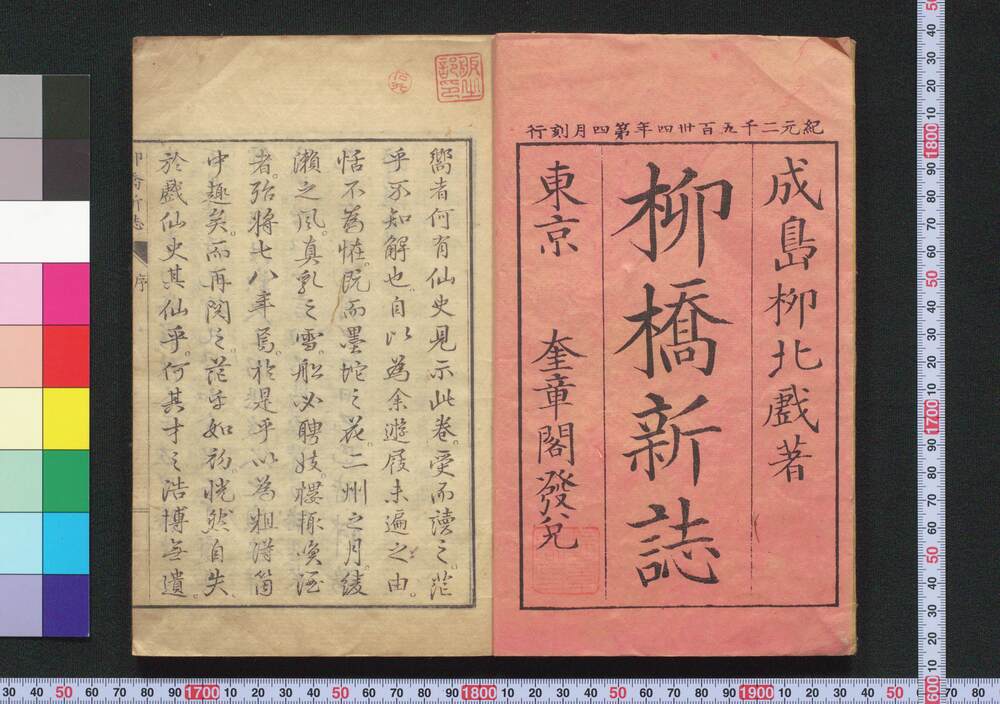 紀元二千五百卅四年第四月刻行
成島柳北戲著
柳橋新誌
東京 奎章閣發兌
嚮者何有仙史見示此卷。受而讀之。茫
乎不知解也。自以為余遊屐未遍之由。
恬不為怪。既而墨坨之花。二州之月。綾
瀨之風。真乳之雪。船必聘妓。樓輙喚酒
者。殆將七八年焉。於是乎以為粗得箇
中趣矣。而再閱之。茫乎如初。恍然自失。
於戲仙史其仙乎。何其才之浩博無遺
柳橋新誌 序